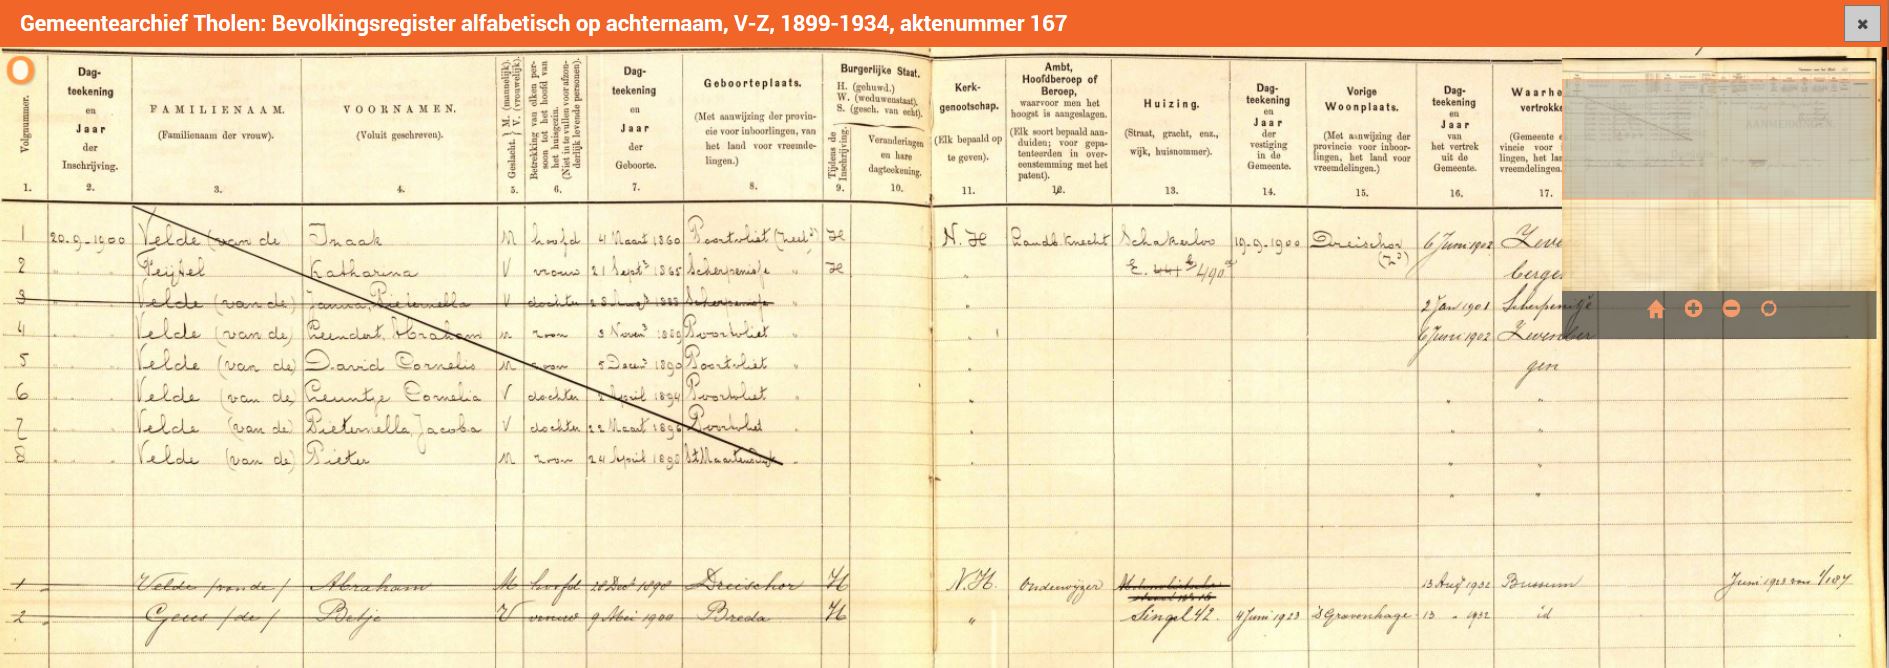 Gemeentearchief Tholen: Bevolkingsregister alfabetisch op achternaam, V-Z, 1899-1934, aktenummer 167
Volgnummer.
Dag-
teekening
en
Jaar
der
Inschrijving.
FAMILIENAAM.
(Familienaam der vrouw).
VOORNAMEN.
(Voluit geschreven).
Geslacht. } M. (mannelijk). V. (vrouwelijk).
Betrekking van elken per-
soon tot het hoofd van
het huisgezin.
(Niet in te vullen voor afzon-
derlijk levende personen).
Dag-
teekening
en
Jaar
der
Geboorte.
Geboorteplaats.
(Met aanwijzing der provin-
cie voor inboorlingen, van
het land voor vreemde-
lingen.)
Burgerlijke Staat.
H. (gehuwd.)
W. (weduwenstaat).
S. (gesch. van echt).
Tijdens de
Inschrijving.
Veranderingen
en hare
dagteekening.
Kerk-
genootschap.
(Elk bepaald op
te geven).
Ambt,
Hoofdberoep of
Beroep,
waarvoor men het
hoogst is aangeslagen.
(Elk soort bepaald aan-
duiden; voor gepa-
tenteerden in over-
eenstemming met het
patent).
Huizing.
(Straat, gracht, enz.,
wijk, huisnommer).
Dag-
teekening
en
Jaar
der
vestiging
in de
Gemeente.
Vorige
Woonplaats.
(Met aanwijzing der
provincie voor inboor-
lingen, het land voor
vreemdelingen.)
Dag-
teekening
en
Jaar
van
het vertrek
uit de
Gemeente.
Waarhe
vertrokke
(Gemeente e
vincie voor i
lingen, het lan
vreemdelingen.
1. 2. 3. 4. 5. 6. 7. 8. 9. 10. 11. 12. 13. 14. 15. 16. 17.
AANMERKINGEN.
1 20-9-1900 Velde (van de Izaak M hoofd 4 Maart 1860 Poortvliet (Zeeld) H N.H Landb. knecht Schakerloo 19-9-1900 Dreischor 6 Juni 1902 Zeve
2 Katharina V vrouw 21 Sept 1865 Scherpenisse H E. 490
(Zd) bergen
3 Velde (van de) Janna, Pieternella V dochter Scherpenisse 2 Jan 1901 Scherpenisse
4 Velde (van de) Leendert, Abraham M zoon 3 Novem 1889 Poortvliet 6 Juni 1902 Zevenber
5 Velde (van de) David Cornelis M zoon 5 Decem 1890 Poortvliet gen
6 Velde (van de) Leuntje Cornelia V dochter 2 April 1894 Poortvliet
7 Velde (van de) Pieternella, Jacoba V dochter 22 Maart 1896 Poortvliet
8 Velde (van de) Pieter M zoon 24 April St Maartensdijk
1 Velde /van de/ Abraham M hoofd 1898 Dreischor H N.H. Onderwijzer 13 Aug 1932 Bussum Juni 1923 van 1/187
2 Geus /de/ Betje V vrouw 9 Mei 1900 Breda H " Singel 42. 4 Juni 1923 's Gravenhage 13 " 1932 id